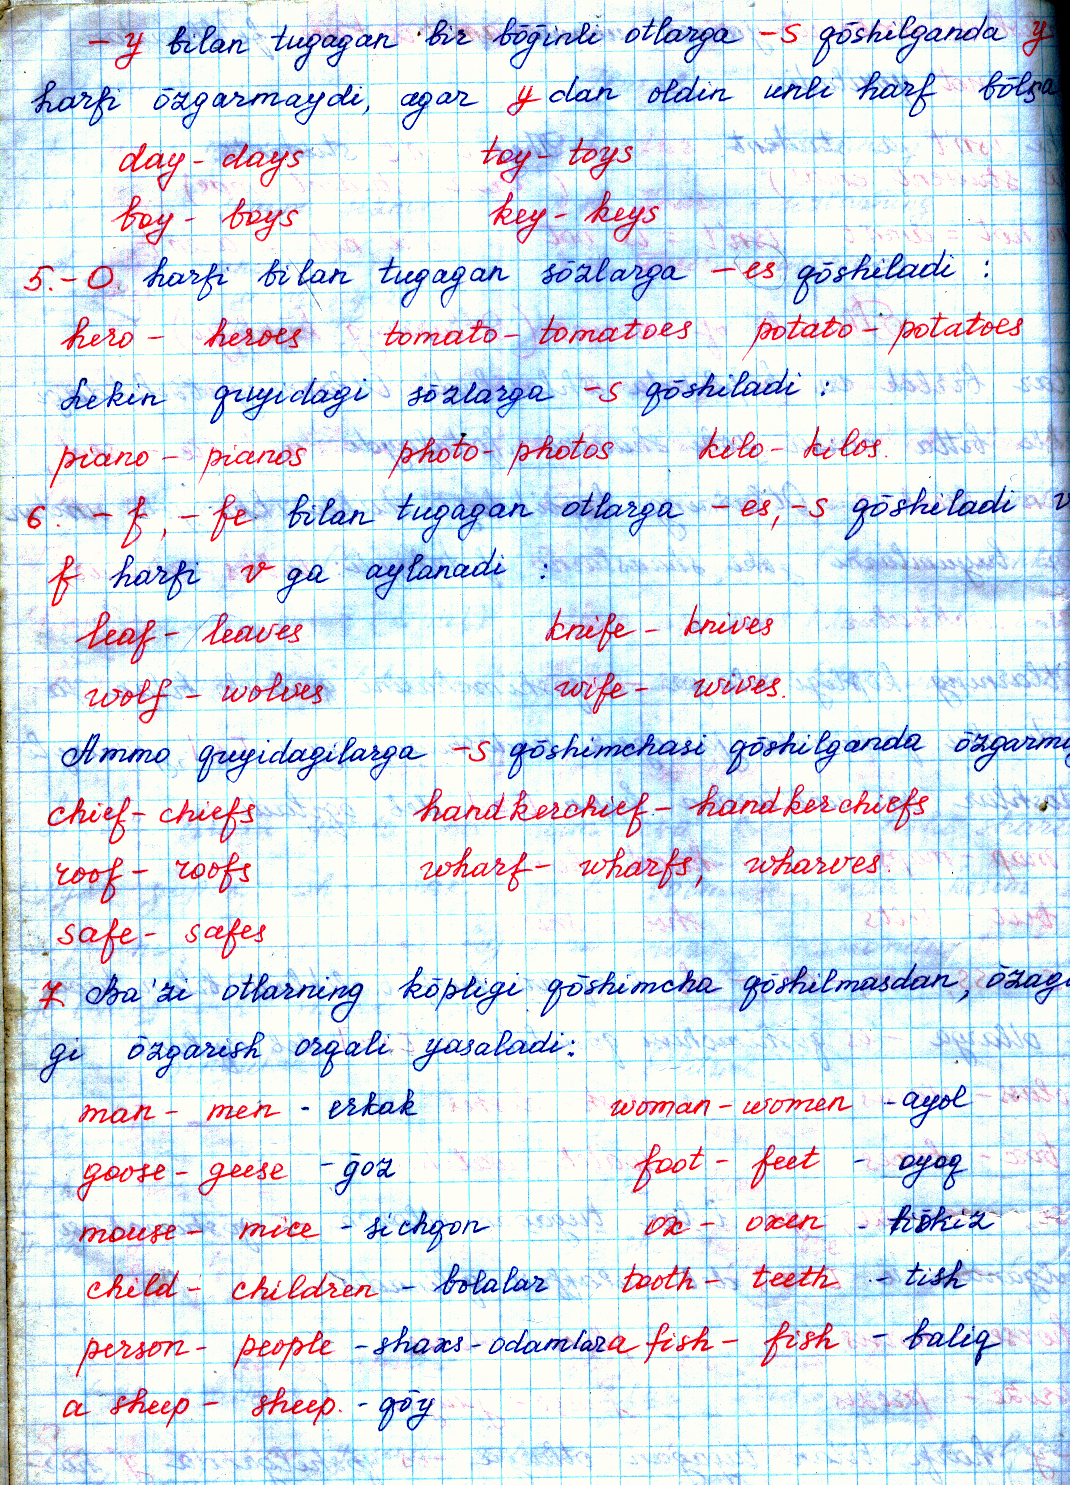 -y bilan tugagan bir bōğinli otlarga -s qōshilganda y
harfi ōzgarmaydi, agar y dan oldin unli harf bōlsa
day - days toy - toys
boy - boys key - keys
5. -O harfi bilan tugagan sōzlarga -es qōshiladi :
hero - heroes tomato - tomatoes potato - potatoes
Lekin quyidagi sōzlarga -s qōshiladi :
piano - pianos photo - photos kilo - kilos.
6. -f, -fe bilan tugagan otlarga -es, -s qōshiladi v
f harfi v ga aylanadi :
leaf - leaves knife - knives
wolf - wolves wife - wives.
Ammo quyidagilarga -s qōshimchasi qōshilganda ōzgarma
chief - chiefs handkerchief - handkerchiefs
roof - roofs wharf - wharfs, wharves.
safe - safes
7. Ba'zi otlarning kōpligi qōshimcha qōshilmasdan, ōzagi
gi ōzgarish orqali yasaladi:
man - men - erkak woman - women - ayol
goose - geese - ğoz foot - feet - oyoq
mouse - mice - sichqon ox - oxen - hōkiz
child - children - bolalar tooth - teeth - tish
person - people - shaxs - odamlar a fish - fish - baliq
a sheep - sheep. - qōy